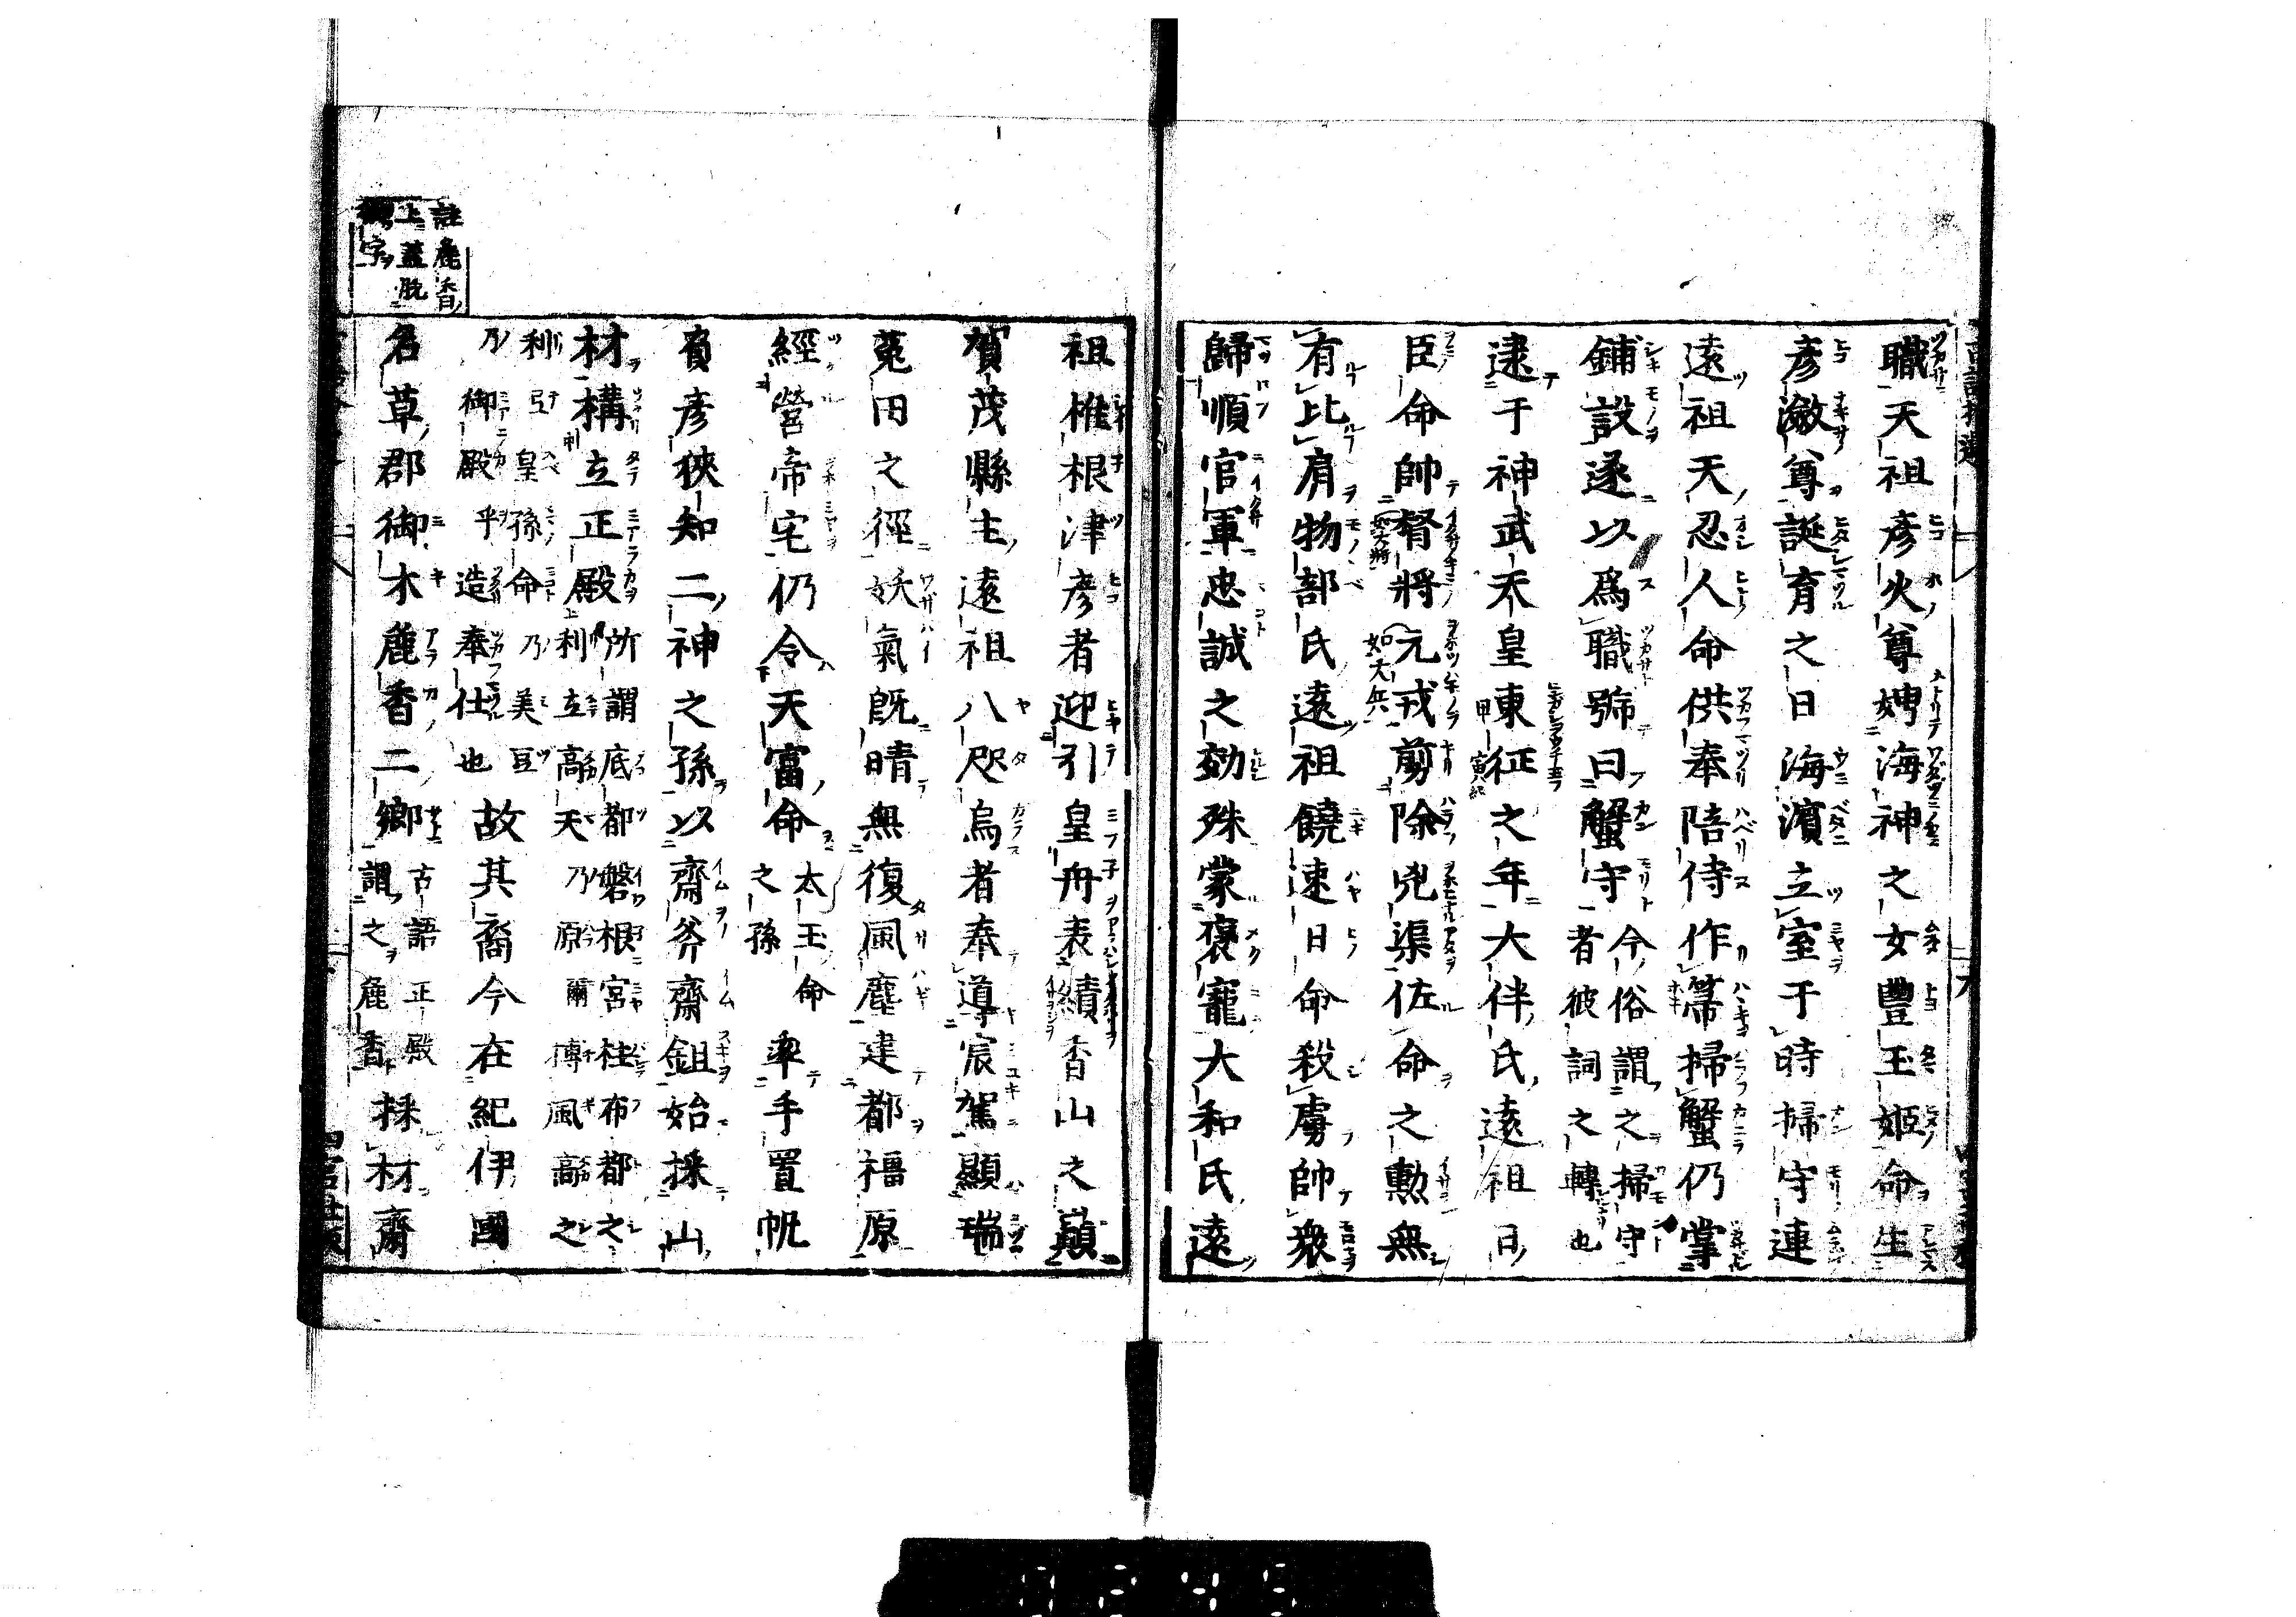 職天祖彦火尊娉海神之女豐玉姬命生
彦瀲尊誕育之日海濵立室于時掃守連
遠祖天忍人命供奉陪侍作箒掃蟹仍掌
鋪設遂以爲職號曰蟹守今俗謂之掃守
者彼詞之轉也
逮于神武天皇東征之年大伴氏遠祖日
臣命帥督將元戎剪除兇渠佐命之勲無
有比肩物部氏遠祖饒速日命殺虜帥衆
歸順官軍忠誠之効殊蒙褒寵大和氏遠
祖椎根津彦者迎引皇舟表績香山之巓
賀茂縣主遠祖八咫烏者奉導宸駕顯瑞
菟田之徑妖氣既晴無復風塵建都橿原
經營帝宅仍令天富命太玉命
之孫
率手置帆
負彦狹知二神之孫以齋斧齋鉏始採山
材構立正殿所謂底都磐根宮柱布都之
利立高天乃原爾搏風高之
利弖皇孫命乃美豆
乃御殿乎造奉仕也故其裔今在紀伊國
名草郡御木麁香二鄉古語正殿
謂之麁香
採材齋
註麁香
上蓋脱
字